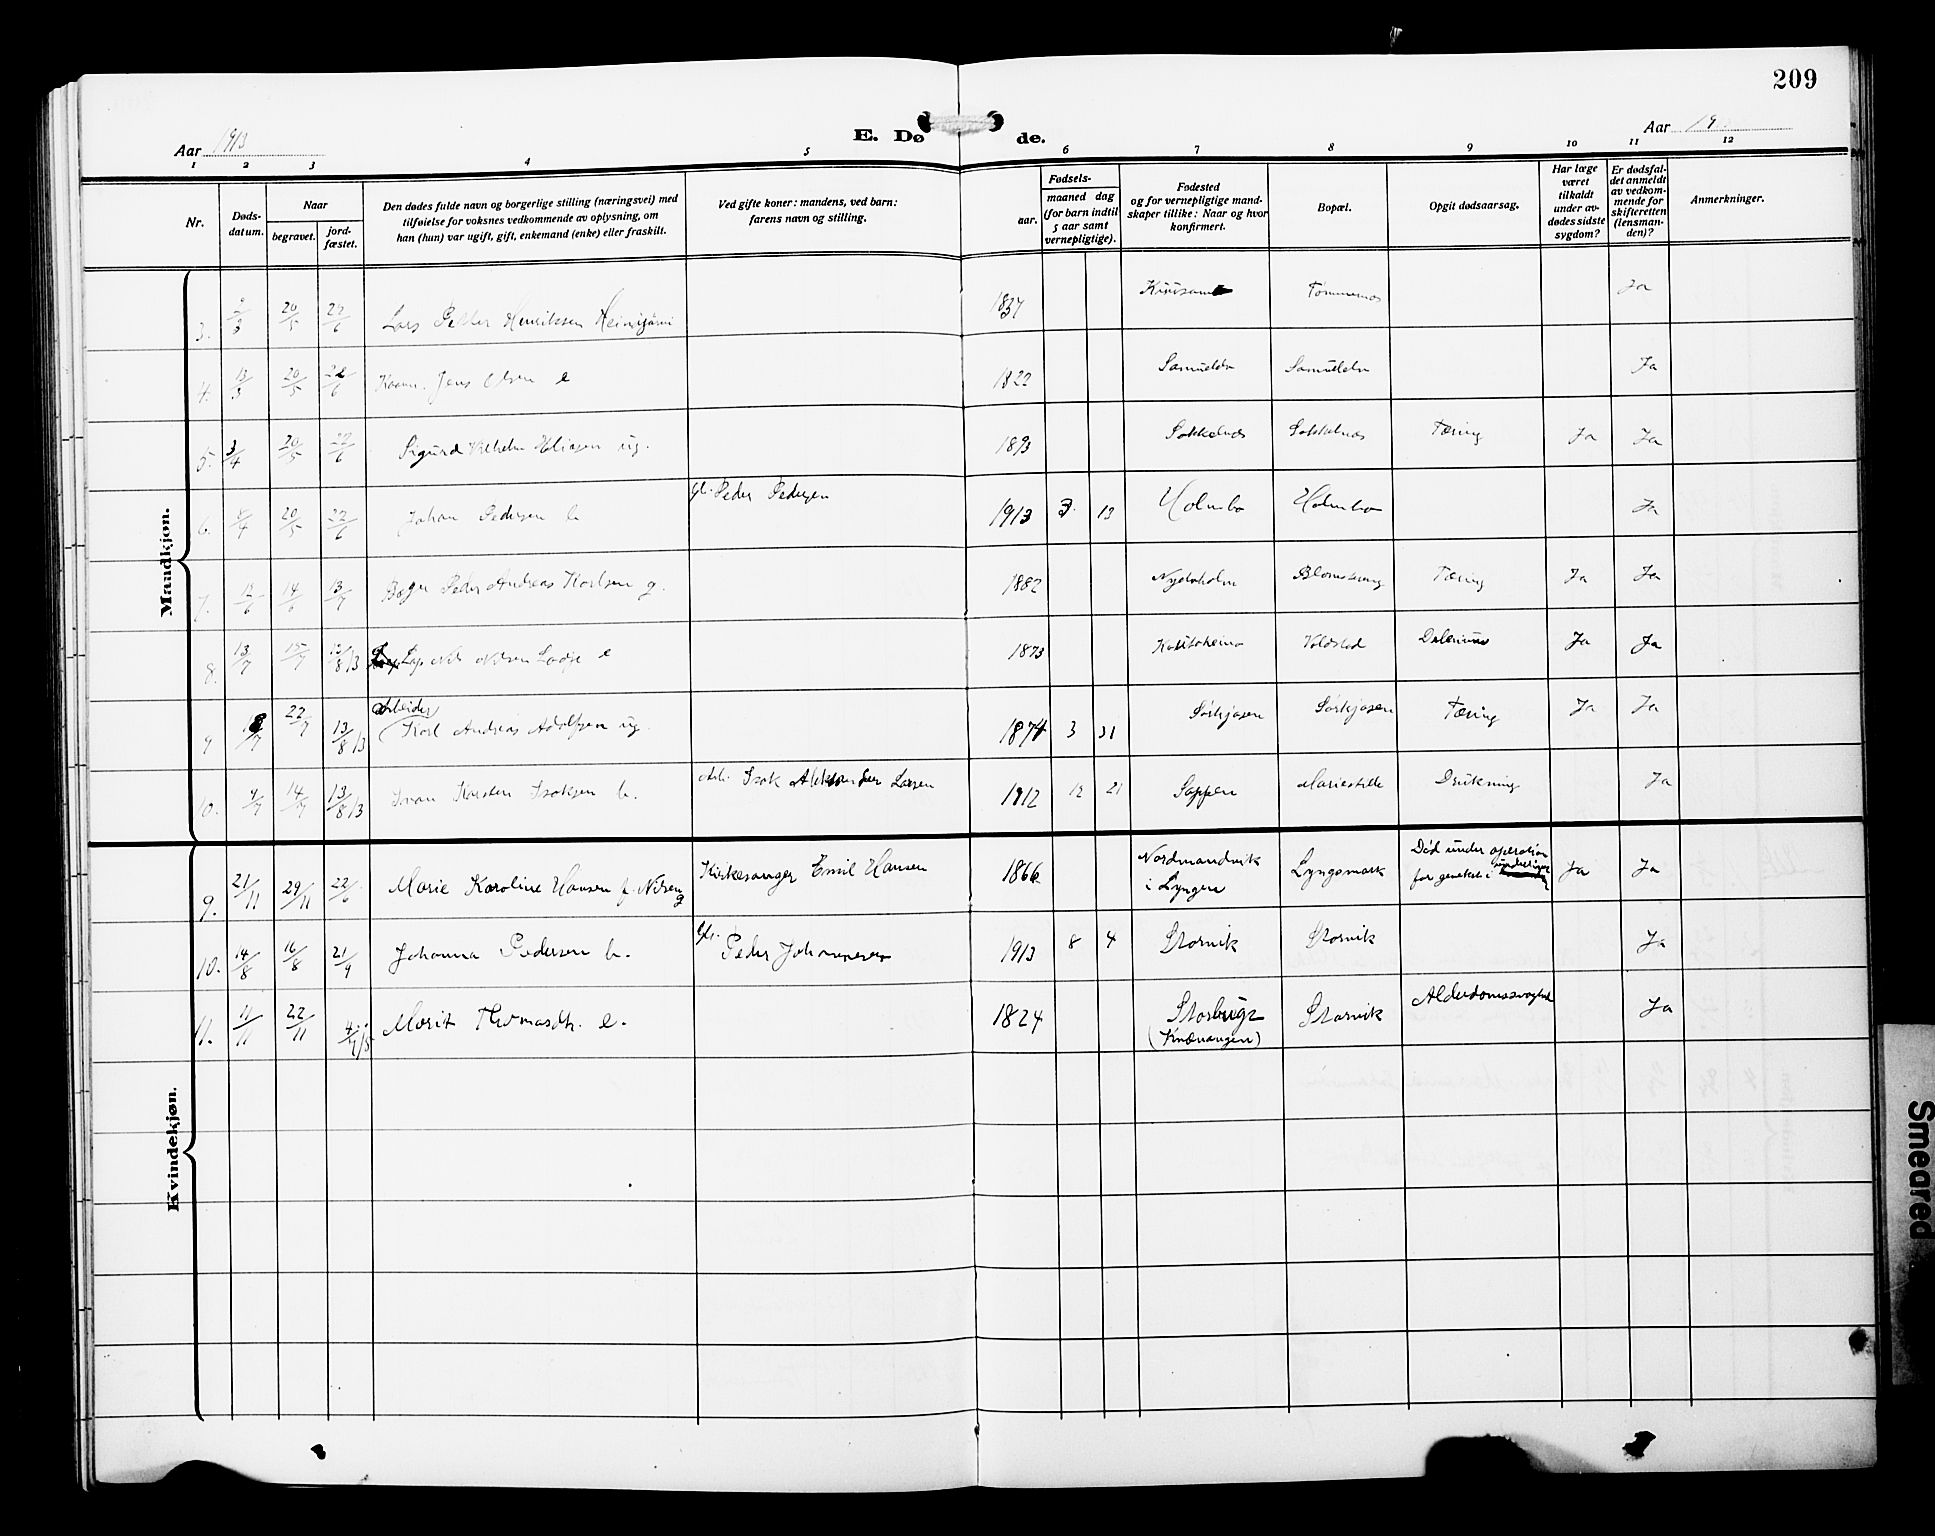 209
Aar 1913
E. Dø de.
Aar 19
1 2 3 4 5 6 7 8 9 10 11 12
Nr.
Døds-datum.
Naar
begravet.
jord-fæstet.
Den dødes fulde navn og borgerlige stilling (næringsvei) med
tilføielse for voksnes vedkommende av oplysning, om
han (hun) var ugift, gift, enkemand (enke) eller fraskilt.
Ved gifte koner: mandens, ved barn:
farens navn og stilling.
Fødsels-
aar.
maaned dag
(for barn indtil
5 aar samt
vernepligtige).
Fødested
og for vernepligtige mand-
skaper tillike: Naar og hvor
konfirmert.
Bopæl.
Opgit dødsaarsag.
Har læge
været
tilkaldt
under av-
dødes sidste
sygdom?
Er dødsfal-
det anmeldt
av vedkom-
mende for
skifteretten
(lensman-
den)?
Anmerkninger.
Mandkjøn.
3. 20/5 22/6 Lars Petter Henriksen 1837 Tømmernes Ja
4. 13/3 20/5 22/6 Jens Olsen e 1822 Samuelelv Samuelelv Ja
5. 3/4 20/5 22/6 Sigurd Vilhelm Eliasen ug. 1893 Sokkelnes Sokkelnes Tæring Ja Ja
6. 20/5 22/6 Johan Pedersen b. Peder Pedersen 1913 3. 13 Holmbo Holmbo Ja
7. 12/6 14/6 13/7 Peder Andreas Karlsen g. 1882 Tæring Ja Ja
8. 13/7 15/7 13/8 13 Lap Nils Nilsen e 1873 Kautokeino Delerium Ja Ja
9 18/7 22/7 13/8 13 Arbeider Karl Andreas Adolfsen ug. 1874 3 31 Sørkjosen Sørkjosen Tæring Ja Ja
10. 4/7 14/7 13/8 13 Karsten Isaksen b. Arb. Isak Aleksander Larsen 1912 12 21 Sappen Drukning Ja
Kvindekjøn.
9. 21/11 29/11 22/6 Marie Karoline Hansen f. Nilsen g Kirkesanger Emil Hansen 1866 Nordmandvik i Lyngen Lyngsmark Død under operation for Ja Ja
10. 14/8 16/8 21/9 Johanna Pedersen b. Peder Johannesen 1913 8 4 Storvik Storvik Ja
11. 11/11 22/11 Marit Thomasdtr. e. 1824 Storbugt (Kvænangen) Storvik Alderdomssvaghed Ja
Smeared